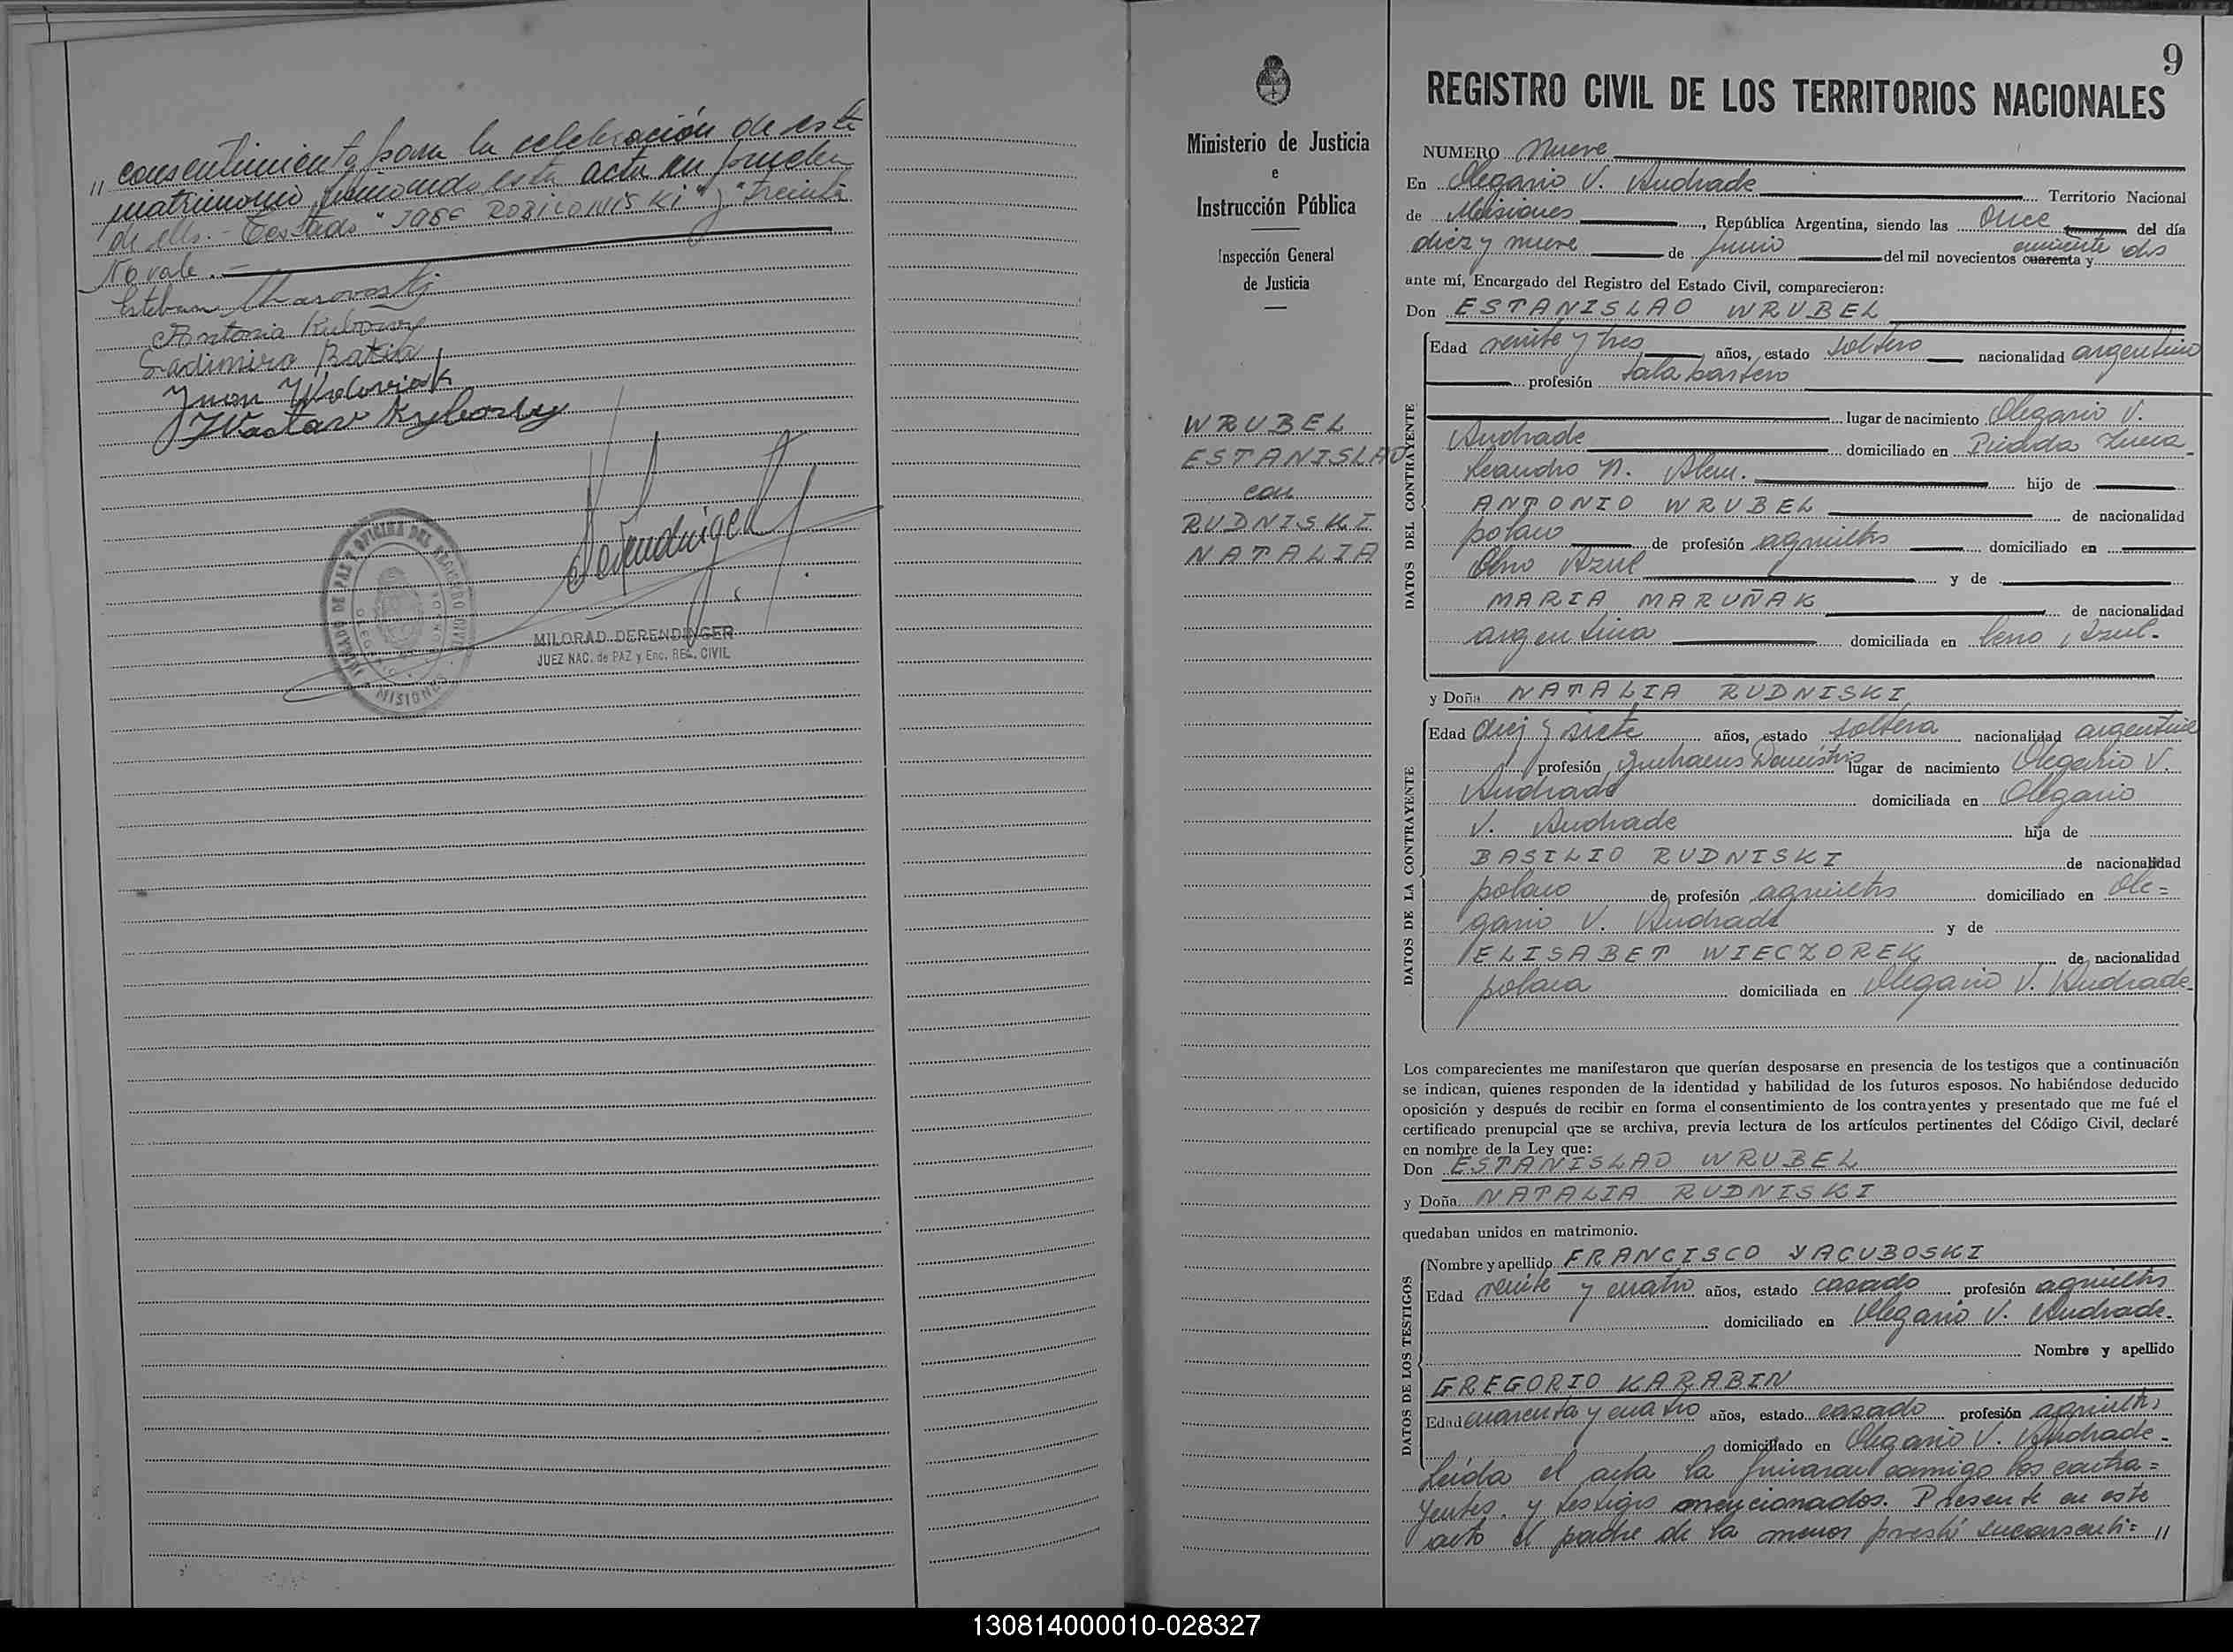 " consentimiento para la celebración de este
matrimonio, firmando esta acta en prueba
de ello.- Testado "JOSE ROBILONISKI" y "treinta
No vale.-
Esteban
Antonia
Ladimiro
Juan
MILORAD DERENDINGER
JUEZ NAC. de PAZ y Enc. REG. CIVIL
MISIONES
Ministerio de Justicia
e
Instrucción Pública
Inspección General
de Justicia
WRUBEL
ESTANISLAO
con
RUDNISKI
NATALIA
9
REGISTRO CIVIL DE LOS TERRITORIOS NACIONALES
NUMERO Nueve
En Olegario V. Andrade Territorio Nacional
de Misiones, República Argentina, siendo las once del día
diez y nueve de Junio del mil novecientos cuarenta y cincuenta dos
ante mí, Encargado del Registro del Estado Civil, comparecieron:
Don ESTANISLAO WRUBEL
DATOS DEL CONTRAYENTE
Edad veinte y tres años, estado soltero nacionalidad argentino
profesión
lugar de nacimiento Olegario V.
Andrade domiciliado en Picada
Leandro N. Alem. hijo de
ANTONIO WRUBEL de nacionalidad
polaco de profesión agricultor domiciliado en
Cerro Azul y de
MARIA MARUÑAK de nacionalidad
argentina domiciliada en Cerro Azul.-
y Doña NATALIA RUDNISKI
DATOS DE LA CONTRAYENTE
Edad diez y siete años, estado soltera nacionalidad argentina
profesión Quehaceres Domésticos lugar de nacimiento Olegario V.
Andrade domiciliada en Olegario
V. Andrade hija de
BASILIO RUDNISKI de nacionalidad
polaco de profesión agricultor domiciliado en Ole=
gario V. Andrade y de
ELISABET WIECZOREK de nacionalidad
polaca domiciliada en Olegario V. Andrade-
Los comparecientes me manifestaron que querían desposarse en presencia de los testigos que a continuación
se indican, quienes responden de la identidad y habilidad de los futuros esposos. No habiéndose deducido
oposición y después de recibir en forma el consentimiento de los contrayentes y presentado que me fué el
certificado prenupcial que se archiva, previa lectura de los artículos pertinentes del Código Civil, declaré
en nombre de la Ley que:
Don ESTANISLAO WRUBEL
y Doña NATALIA RUDNISKI
quedaban unidos en matrimonio.
DATOS DE LOS TESTIGOS
Nombre y apellido FRANCISCO YACUBOSKI
Edad veinte y cuatro años, estado casado profesión agricultor
domiciliado en Olegario V. Andrade.
Nombre y apellido
GREGORIO KARABIN
Edad cuarenta y cuatro años, estado casado profesión agricultor
domiciliado en Olegario V. Andrade-
Leída el acta la firmaron conmigo los contra=
yentes y testigos mencionados. Presente en este
acto el padre de la menor prestó su consenti= "
130814000010-028327